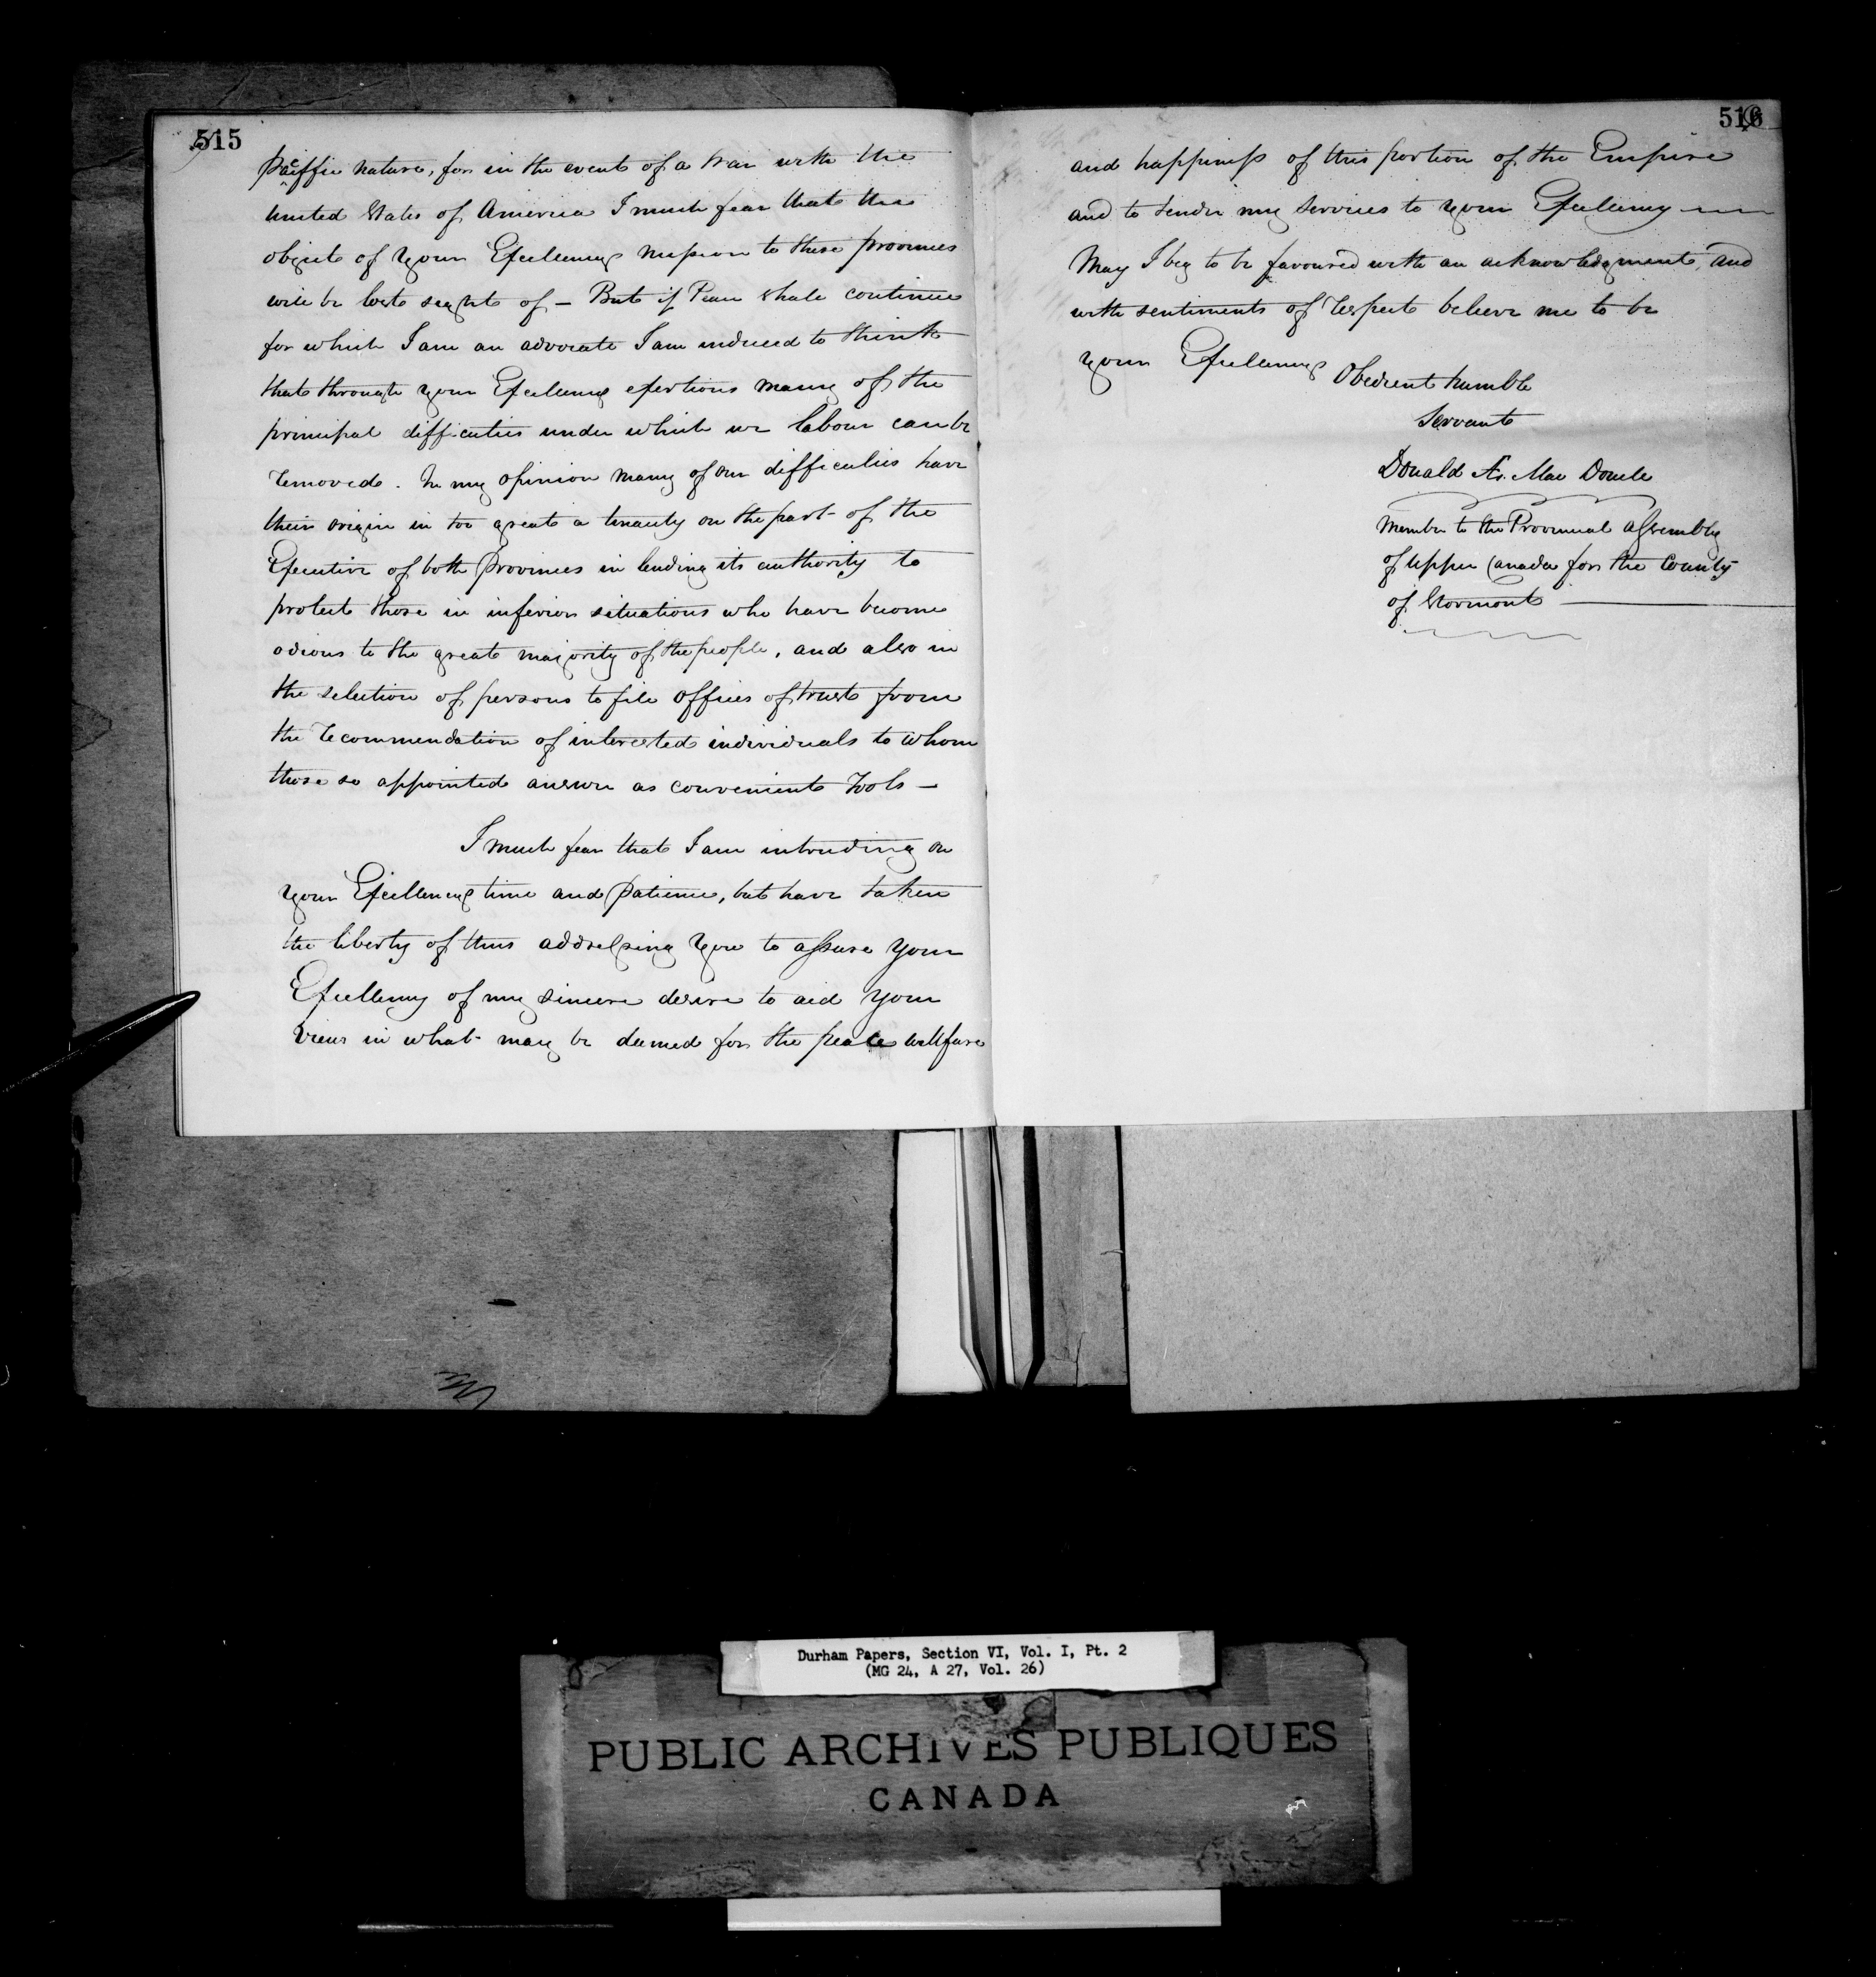 515
pacific nature, for in the event of a War with the
United States of America I much fear that the
object of your Excellencys Mission to these provinces
will be lost sight of – But if Peace shall continue
for which I am an advocate I am induced to think
that through your Excellencys exertions many of the
principal difficulties under which we labour can be
removed. In my opinion many of our difficulties have
their origin in too great a tenacity on the part of the
Executive of both Provinces in lending its authority to
protect those in inferior situations who have become
odious to the great majority of the people, and also in
the selection of persons to fill offices of trust from
the recommendation of interested individuals to whom
those so appointed answer as convenient Tools –
I much fear that I am intruding on
your Excellencys time and patience, but have taken
the liberty of thus addressing you to assure your
Excellency of my sincere desire to aid your
views in what may be deemed for the peace wellfare
516
and happiness of this portion of the Empire
and to tender my services to your Excellency
May I beg to be favoured with an acknowledgment, and
with sentiments of respect believe me to be
your Excellencys Obedient humble
Servant
Donald Æ. Mac Donell
Member to the Provincial Assembly
of Upper Canada for the County
of Stormont
Durham Papers, Section VI, Vol. I, Pt. 2
(MG 24, A 27, Vol. 26)
PUBLIC ARCHIVES PUBLIQUES
CANADA